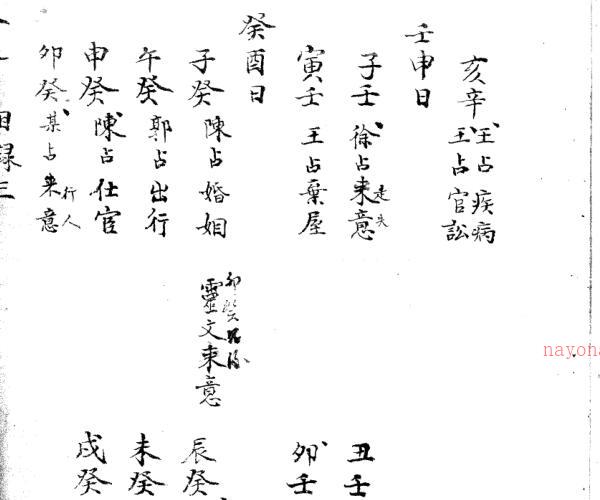 亥辛 王占疾病
王占官訟
壬申日
子壬 徐占来意 走失
寅壬 王占葉屋
癸酉日
子癸 陳占婚姻
午癸 郭占出行
申癸 陳占仕宦
卯癸 某占来意 行人
目録三
靈文来意
丑壬
卯壬
辰癸
未癸
戌癸
nayoha